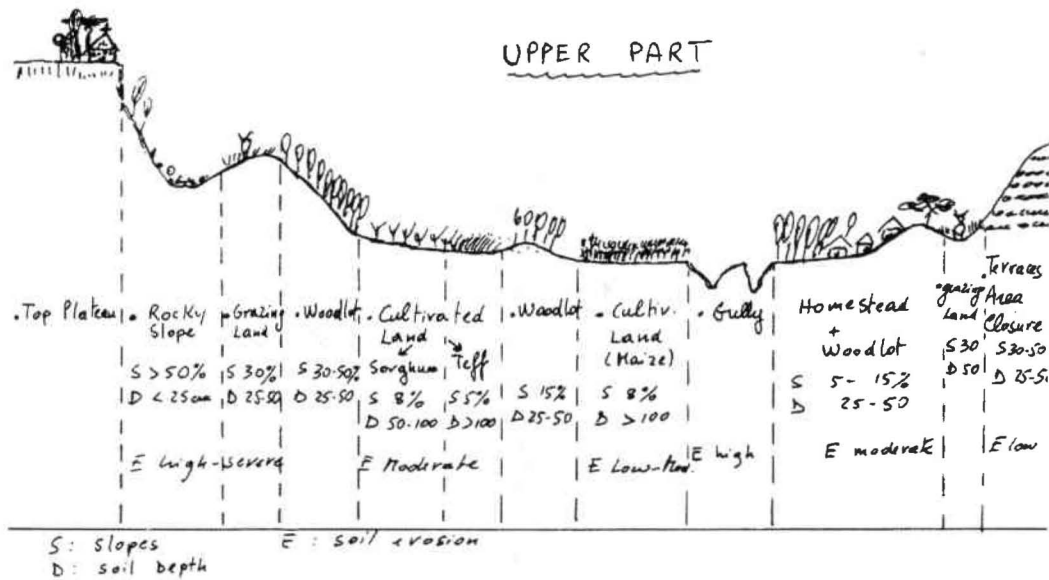 UPPER PART
• Top Plateau
• Rocky
Slope
S > 50%
D < 25cm
E high-severe
• Grazing
Land
S 30%
D 25-50
• Woodlot
S 30-50%
D 25-50
• Cultivated
Land
Sorghum
S 8%
D 50-100
Teff
S 5%
D >100
E Moderate
• Woodlot
S 15%
D 25-50
• Cultiv.
Land
(Maize)
S 8%
D > 100
E Low-Mod.
• Gully
E high
Homestead
+
Woodlot
S 5 - 15%
D 25-50
E moderate
• grazing
Land
S 30
D 50
• Terraces
Area
Closure
S 30-50
D 25-50
E low
S : slopes
E : soil erosion
D : soil Depth